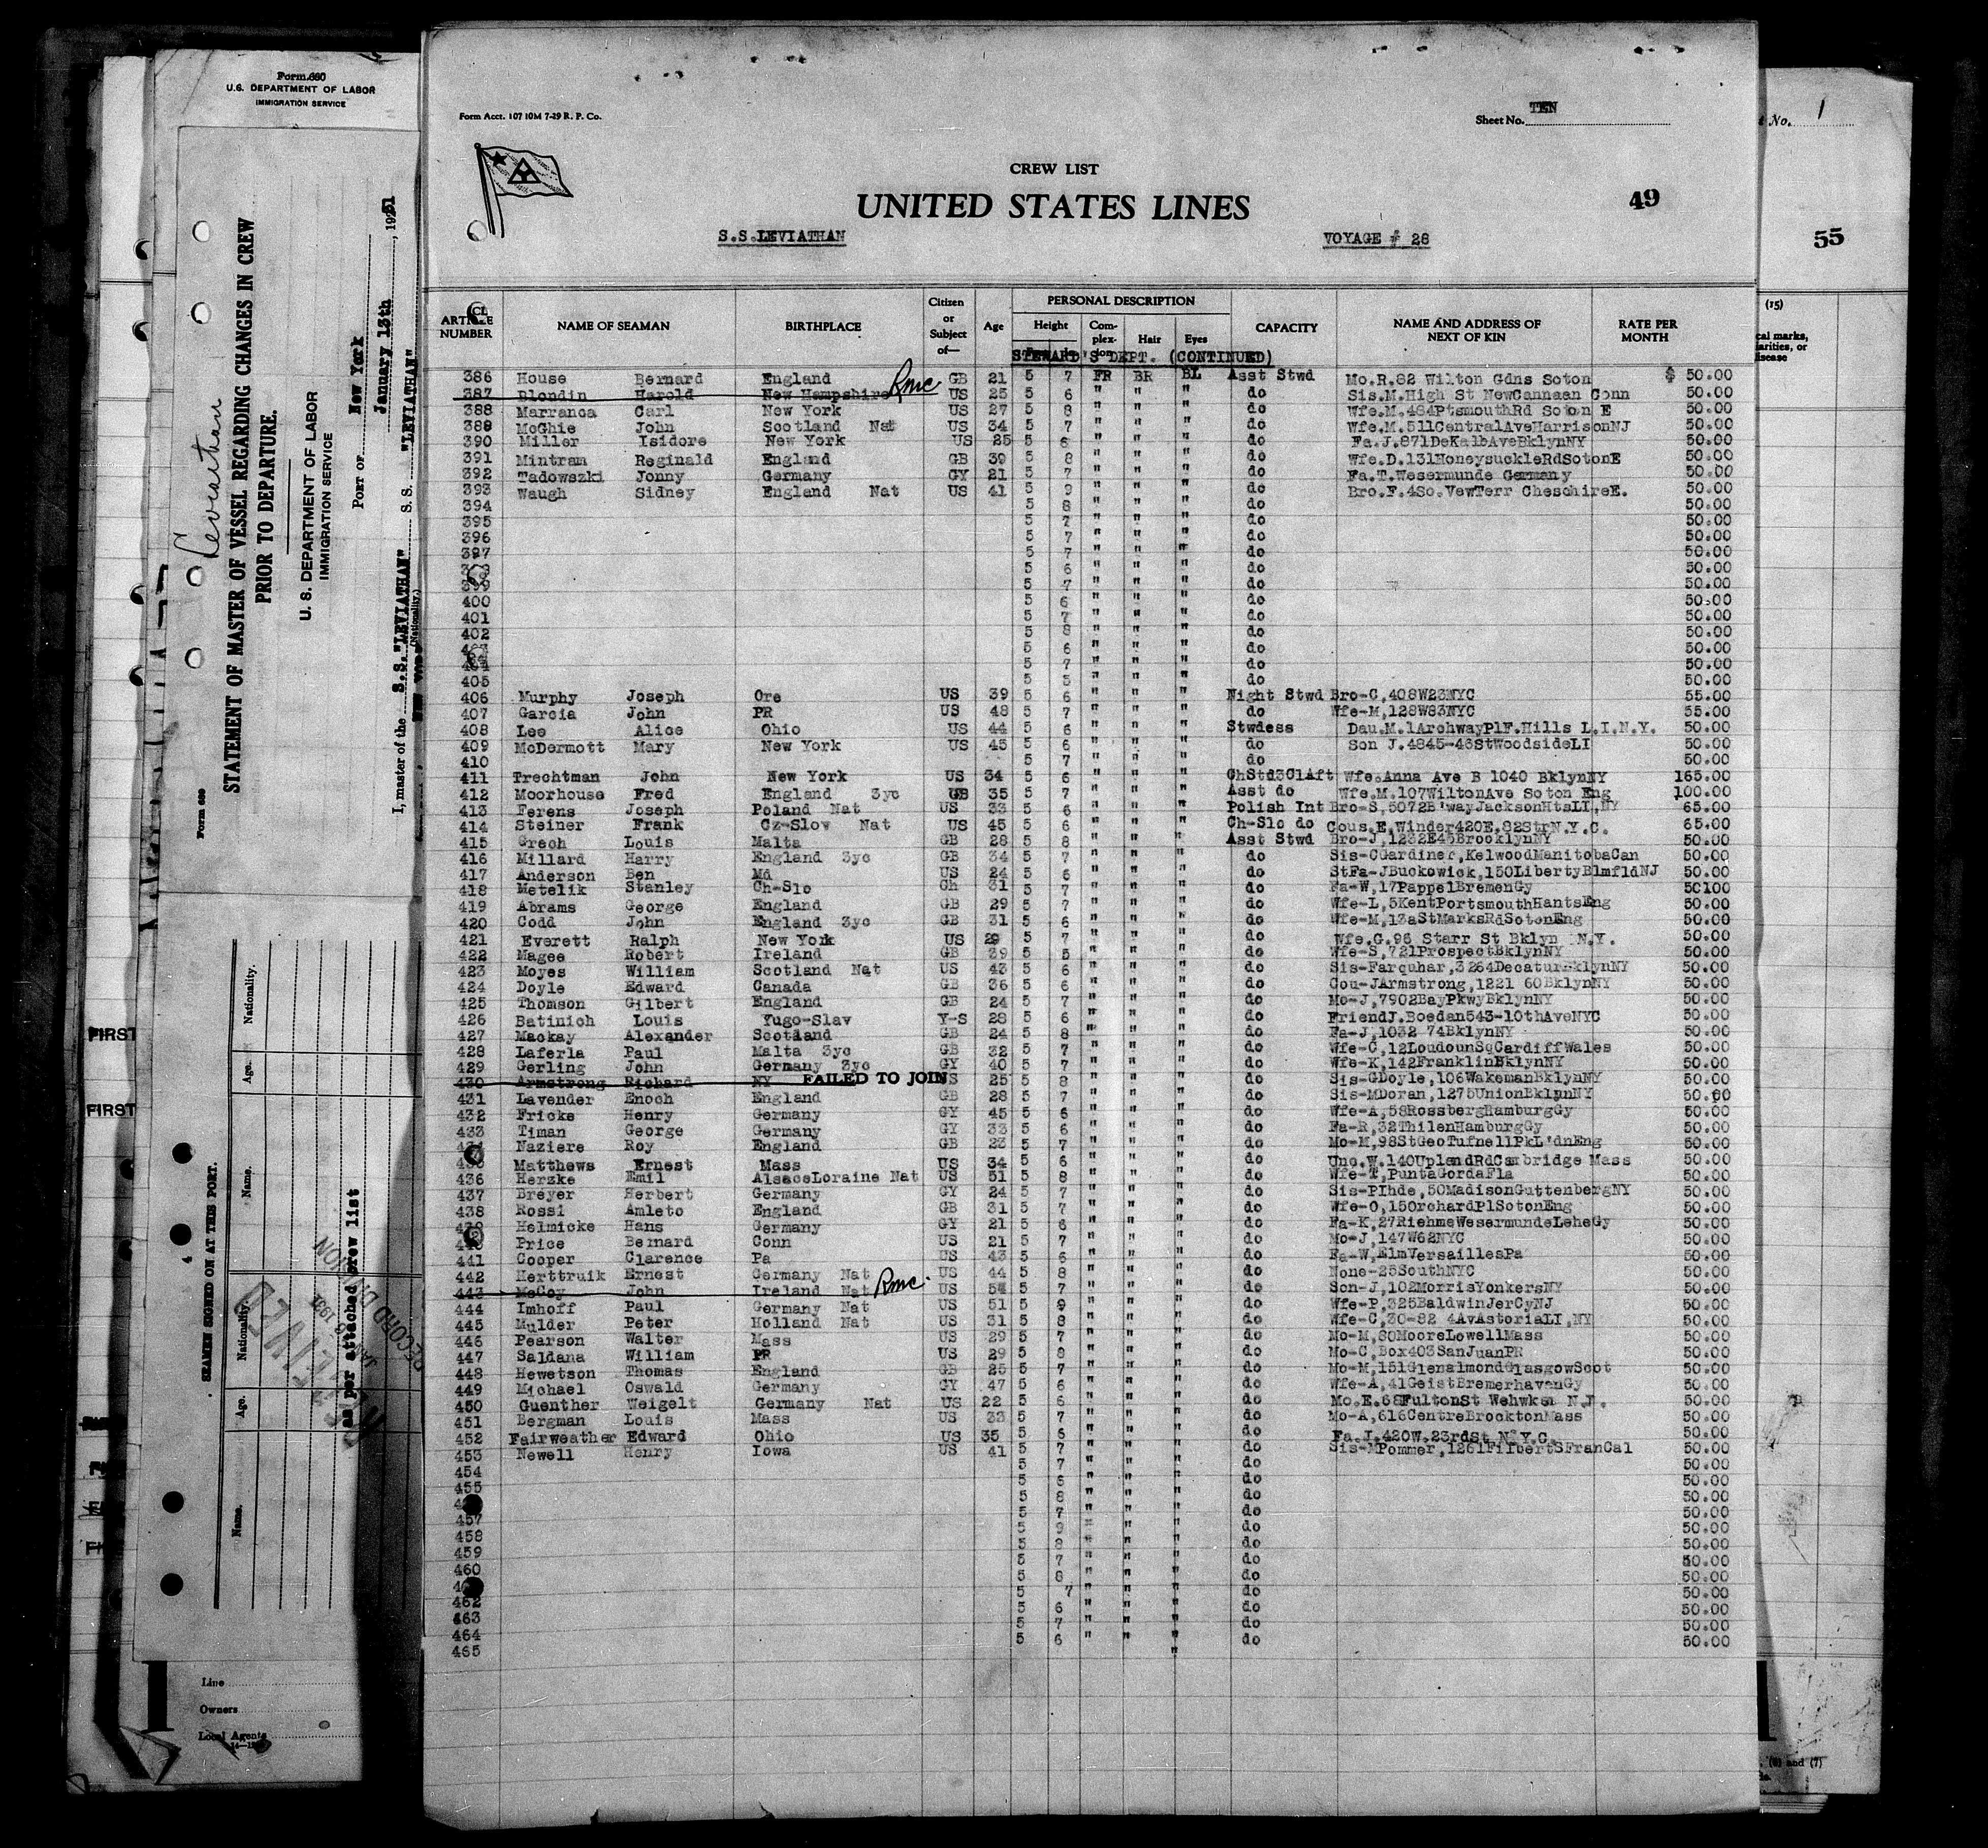 Form 680
U.S. DEPARTMENT OF LABOR
IMMIGRATION SERVICE
Leviathan
STATEMENT OF MASTER OF VESSEL REGARDING CHANGES IN CREW
PRIOR TO DEPARTURE.
U. S. DEPARTMENT OF LABOR
IMMIGRATION SERVICE
PORT OF New York
January 13th, 1931
I, master of the S.S. "LEVIATHAN" S. S. "LEVIATHAN"
(Nationality.)
Form 689
SEAMEN SIGNED ON AT THIS PORT.
Name. Age. Nationality. Name. Age. Nationality.
as per attached crew list
RECORD DIVISION
FIRST
FIRST
Line
Owners
Local Agents
Form Acct. 107 10M 7-29 R. P. Co.
Sheet No. TEN
CREW LIST
UNITED STATES LINES
49
S.S.LEVIATHAN VOYAGE # 28
ARTICLE NUMBER NAME OF SEAMAN BIRTHPLACE Citizen or Subject of— Age PERSONAL DESCRIPTION Height Complexion Hair Eyes CAPACITY NAME AND ADDRESS OF NEXT OF KIN RATE PER MONTH
STEWARD'S DEPT. (CONTINUED)
386 House Bernard England GB 21 5 7 FR BR BL Asst Stwd Mo.R.82 Wilton Gdns Soton $ 50.00
387 Blondin Harold New Hampshire Rmc US 25 5 6 " " " do Sis.M.High St NewCannaan Conn 50.00
388 Marranca Carl New York US 27 5 8 " " " do Wfe.M.464PtsmouthRd Soton E 50.00
389 McGhie John Scotland Nat US 34 5 7 " " " do Wfe.M.511CentralAveHarrisonNJ 50.00
390 Miller Isidore New York US 25 5 6 " " " do Fa.J.871DeKalbAveBklynNY 50.00
391 Mintram Reginald England GB 39 5 8 " " " do Wfe.D.131HoneysuckleRdSotonE 50.00
392 Tadowszki Jonny Germany GY 21 5 7 " " " do Fa.T.Wesermunde Germany 50.00
393 Waugh Sidney England Nat US 41 5 9 " " " do Bro.F.4So.VewTerr CheschireE. 50.00
394 5 8 " " " do 50.00
395 5 7 " " " do 50.00
396 5 7 " " " do 50.00
397 5 7 " " " do 50.00
398 5 6 " " " do 50.00
399 5 7 " " " do 50.00
400 5 6 " " " do 50.00
401 5 7 " " " do 50.00
402 5 8 " " " do 50.00
403 5 6 " " " do 50.00
404 5 7 " " " do 50.00
405 5 5 " " " do 50.00
406 Murphy Joseph Ore US 39 5 6 " " " Night Stwd Bro-C,408W23NYC 55.00
407 Garcia John PR US 48 5 7 " " " do Wfe-M,128W83NYC 55.00
408 Lee Alice Ohio US 44 5 6 " " " Stwdess Dau.M.1ArchwayPlF.Hills L.I.N.Y. 50.00
409 McDermott Mary New York US 45 5 6 " " " do Son J.4845-46StWoodsideLI 50.00
410 5 7 " " " do 50.00
411 Trechtman John New York US 34 5 6 " " " ChStd3ClAft Wfe.Anna Ave B 1040 BklynNY 165.00
412 Moorhouse Fred England 3yc GB 35 5 7 " " " Asst do Wfe.M.107WiltonAve Soton Eng 100.00
413 Ferens Joseph Poland Nat US 33 5 6 " " " Polish Int Bro-S,5072B'wayJacksonHtsLI,NY 65.00
414 Steiner Frank Cz-Slov Nat US 45 5 6 " " " Ch-Slo do Cous.E.Winder420E.82StrN.Y.C. 65.00
415 Grech Louis Malta GB 28 5 8 " " " Asst Stwd Bro-J,1232E45BrooklynNY 50.00
416 Millard Harry England 3yc GB 34 5 7 " " " do Sis-CGardiner,KelwoodManitobaCan 50.00
417 Anderson Ben Md US 24 5 6 " " " do StFa-JBuckowick,150LibertyBlmfldNJ 50.00
418 Metelik Stanley Ch-Slo Ch 31 5 7 " " " do Fa-W,17PappelBremenGy 50100
419 Abrams George England GB 29 5 7 " " " do Wfe-L,5KentPortsmouthHantsEng 50.00
420 Codd John England 3yc GB 31 5 6 " " " do Wfe-M,13aStMarksRdSotonEng 50.00
421 Everett Ralph New York US 29 5 7 " " " do Wfe.G.96 Starr St Bklyn N.Y. 50.00
422 Magee Robert Ireland GB 39 5 5 " " " do Wfe-S,721ProspectBklynNY 50.00
423 Moyes William Scotland Nat US 43 5 6 " " " do Sis-Farquhar,3264DecaturBklynNY 50.00
424 Doyle Edward Canada GB 36 5 6 " " " do Cou-JArmstrong,1221 60BklynNY 50.00
425 Thomson Gilbert England GB 24 5 7 " " " do Mo-J,7902BayPkwyBklynNY 50.00
426 Batinich Louis Yugo-Slav Y-S 28 5 6 " " " do FriendJ.Boedan543-10thAveNYC 50.00
427 Mackay Alexander Scotland GB 24 5 8 " " " do Fa-J,1032 74BklynNY 50.00
428 Laferla Paul Malta 3yc GB 32 5 7 " " " do Wfe-C,12LoudounSqCardiffWales 50.00
429 Gerling John Germany 3yc GY 40 5 7 " " " do Wfe-K,142FranklinBklynNY 50.00
430 Armstrong Richard NY FAILED TO JOIN US 25 5 8 " " " do Sis-GDoyle,106WakemanBklynNY 50.00
431 Lavender Enoch England GB 28 5 7 " " " do Sis-MDoran,1275UnionBklynNY 50.00
432 Fricke Henry Germany GY 45 5 6 " " " do Wfe-A,58RossbergHamburgGy 50.00
433 Timan George Germany GY 33 5 6 " " " do Fa-R,32ThilenHamburgGy 50.00
434 Naziere Roy England GB 23 5 7 " " " do Mo-M,98StGeoTufnellPkL'dnEng 50.00
435 Matthews Ernest Mass US 34 5 6 " " " do Unc.W.140UplandRdCambridge Mass 50.00
436 Herzke Emil AlsaceLoraine Nat US 51 5 8 " " " do Wfe-T,PuntaGordaFla 50.00
437 Breyer Herbert Germany GY 24 5 7 " " " do Sis-PIhde,50MadisonGuttenbergNY 50.00
438 Rossi Amleto England GB 31 5 7 " " " do Wfe-O,15OrchardPlSotonEng 50.00
439 Helmicke Hans Germany GY 21 5 6 " " " do Fa-K,27RiehmeWesermundeLeheGy 50.00
440 Price Bernard Conn US 21 5 7 " " " do Mo-J,147W62NYC 50.00
441 Cooper Clarence Pa US 43 5 6 " " " do Fa-W,ElmVersaillesPa 50.00
442 Herttruik Ernest Germany Nat US 44 5 8 " " " do None-25SouthNYC 50.00
443 McCoy John Ireland Nat Rmc. US 54 5 7 " " " do Son-J,102MorrisYonkersNY 50.00
444 Imhoff Paul Germany Nat US 51 5 9 " " " do Wfe-P,325BaldwinJerCyNJ 50.00
445 Mulder Peter Holland Nat US 31 5 8 " " " do Wfe-C,30-82 4AvAstoriaLI,NY 50.00
446 Pearson Walter Mass US 29 5 7 " " " do Mo-M,80MooreLowellMass 50.00
447 Saldana William PR US 29 5 8 " " " do Mo-C,Box403SanJuanPR 50.00
448 Hewetson Thomas England GB 25 5 7 " " " do Mo-M,151GlenalmondGlasgowScot 50.00
449 Michael Oswald Germany GY 47 5 6 " " " do Wfe-A,41GeistBremerhavenGy 50.00
450 Guenther Weigelt Germany Nat US 22 5 6 " " " do Mo.E.68FultonSt Wehwken N.J. 50.00
451 Bergman Louis Mass US 33 5 7 " " " do Mo-A,616CentreBrocktonMass 50.00
452 Fairweather Edward Ohio US 35 5 6 " " " do Fa.J.420W.23rdSt N.Y.C. 50.00
453 Newell Henry Iowa US 41 5 7 " " " do Sis-MPommer,1261FilbertSFranCal 50.00
454 5 7 " " " do 50.00
455 5 6 " " " do 50.00
5 8 " " " do 50.00
457 5 7 " " " do 50.00
458 5 9 " " " do 50.00
459 5 8 " " " do 50.00
460 5 7 " " " do 50.00
5 8 " " " do 50.00
462 5 7 " " " do 50.00
463 5 6 " " " do 50.00
464 5 7 " " " do 50.00
465 5 6 " " " do 50.00
No. 1
55
(15)
(6) and (7)